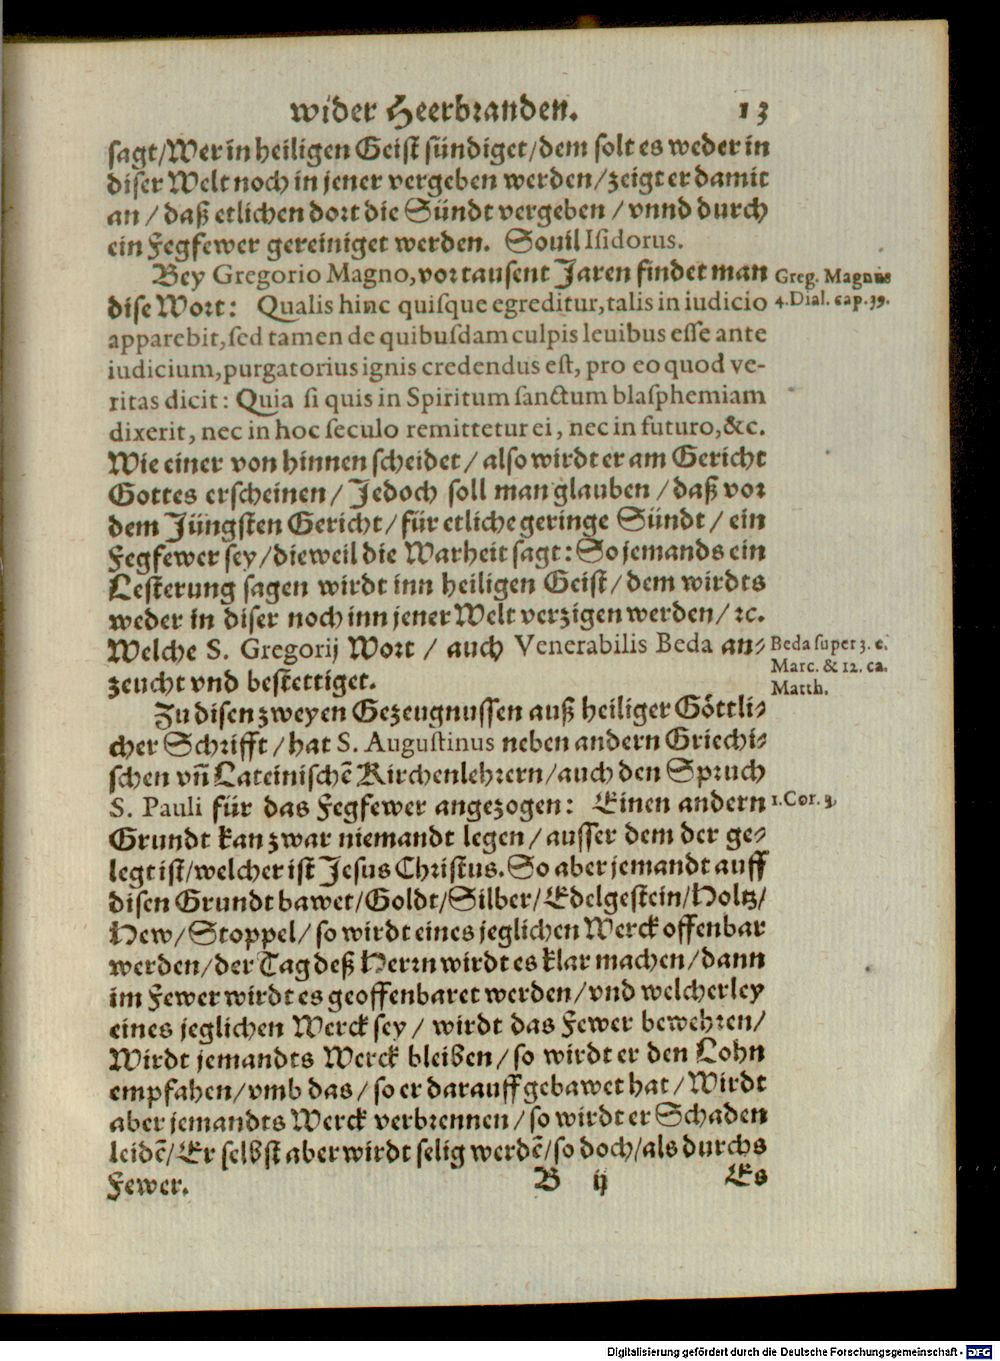 wider Heerbranden. 13
sagt/Wer in heiligen Geist sündiget/dem solt es weder in
diser Welt noch in jener vergeben werden/zeigt er damit
an/daß etlichen dort die Sündt vergeben/vnnd durch
ein Fegfewer gereiniget werden. Souil Isidorus.
Bey Gregorio Magno, vor tausent Jaren findet man
Greg. Magnus
dise Wort: Qualis hinc quisque egreditur, talis in iudicio
4. Dial. cap. 39.
apparebit, sed tamen de quibusdam culpis leuibus esse ante
iudicium, purgatorius ignis credendus est, pro eo quod ve-
ritas dicit: Quia si quis in Spiritum sanctum blasphemiam
dixerit, nec in hoc seculo remittetur ei, nec in futuro, &c.
Wie einer von hinnen scheidet/also wirdt er am Gericht
Gottes erscheinen/Jedoch soll man glauben/daß vor
dem Jüngsten Gericht/für etliche geringe Sündt/ein
Fegfewer sey/dieweil die Warheit sagt: So jemands ein
Lesterung sagen wirdt inn heiligen Geist/dem wirdts
weder in diser noch inn jener Welt verzigen werden/ꝛc.
Welche S. Gregorij Wort/auch Venerabilis Beda an-
Beda super 3. c.
Marc. & 12. ca.
zeucht vnd bestettiget.
Matth.
Zu disen zweyen Gezeugnussen auß heiliger Göttli-
cher Schrifft/hat S. Augustinus neben andern Griechi-
schen vñ Lateinischẽ Kirchenlehrern/auch den Spruch
S. Pauli für das Fegfewer angezogen: Einen andern
1. Cor. 3.
Grundt kan zwar niemandt legen/ausser dem der ge-
legt ist/welcher ist Jesus Christus. So aber jemandt auff
disen Grundt bawet/Goldt/Silber/Edelgestein/Holtz/
Hew/Stoppel/so wirdt eines jeglichen Werck offenbar
werden/der Tag deß Herrn wirdt es klar machen/dann
im Fewer wirdt es geoffenbaret werden/vnd welcherley
eines jeglichen Werck sey/wirdt das Fewer bewehren/
Wirdt jemandts Werck bleiben/so wirdt er den Lohn
empfahen/vmb das/so er darauff gebawet hat/Wirdt
aber jemandts Werck verbrennen/so wirdt er Schaden
leidẽ/Er selbst aber wirdt selig werdẽ/so doch/als durchs
Fewer.
B ij Es
Digitalisierung gefördert durch die Deutsche Forschungsgemeinschaft - DFG